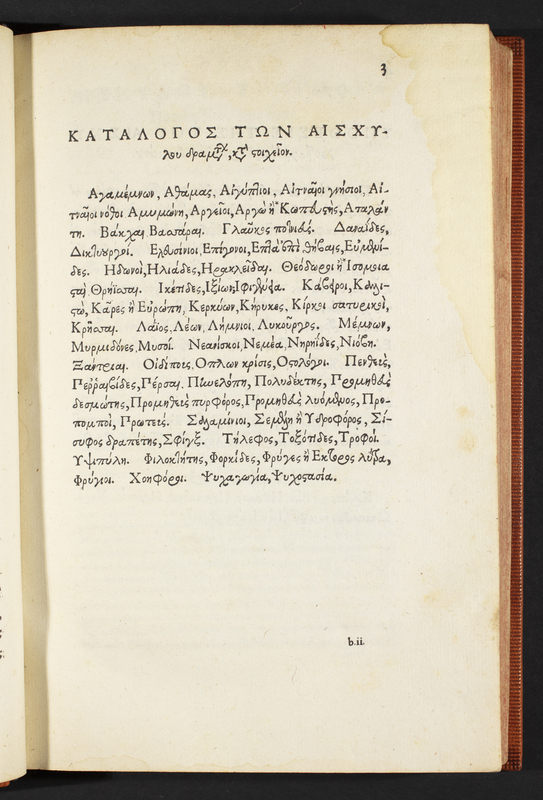 3
ΚΑΤΑΛΟΓΟΣ ΤΩΝ ΑΙΣΧΥ-
λου δραμάτων, κατὰ στοιχεῖον.
Αγαμέμνων, Αθάμας, Αἰγύπτιοι, Αἰτναῖαι γνήσιοι, Αἰ-
τναῖαι νόθοι Αμυμώνη, Αργεῖοι, Αργὼ ἢ Κωπαστὴς, Αταλάν
τη. Βάκχαι Βασσάραι. Γλαῦκος ποτνιεύς. Δαναΐδες,
Δικτυουργοί. Ελευσίνιοι Επίγονοι, Επτὰ ἐπὶ θήβαις, Εὐμενί
δες. Ηδωνοὶ, Ηλιάδες, Ηρακλεῖδαι. Θεόδωροι ἢ Ισθμια
σταὶ Θρῇσσαι. Ικέτιδες, Ιξίων, Ιφιγένεια. Κάβειροι, Καλλι-
στὼ, Κᾶρες ἢ Εὐρώπη, Κερκύων, Κήρυκες, Κίρκη σατυρικὴ,
Κρῆσσαι. Λάϊος, Λέων, Λήμνιοι, Λυκοῦργος. Μέμνων,
Μυρμιδόνες, Μυσοί. Νεανίσκοι, Νεμέα, Νηρηίδες, Νιόβη.
Ξάντριαι. Οἰδίπους, Οπλων κρίσις, Οστολόγοι. Πενθεὺς,
Περῤῥαιβίδες, Πέρσαι, Πηνελόπη, Πολυδέκτης, Προμηθεὺς
δεσμώτης, Προμηθεὺς πυρφόρος, Προμηθεὺς λυόμενος, Προ-
πομποὶ, Πρωτεύς. Σαλαμίνιοι, Σεμέλη ἢ Υδροφόρος, Σί-
συφος δραπέτης, Σφίγξ. Τήλεφος, Τοξότιδες, Τροφοί.
Υψιπύλη. Φιλοκτήτης, Φορκίδες, Φρύγες ἢ Εκτορος λύτρα,
Φρύγιοι. Χοηφόροι. Ψυχαγωγία, Ψυχοστασία.
b.ii.